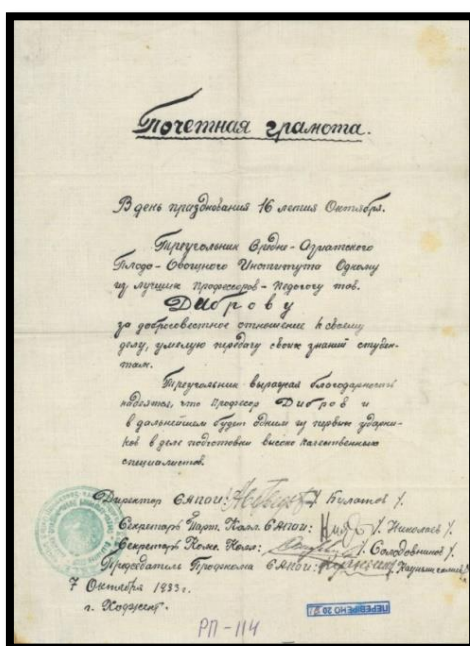 Почетная грамота.
В день празднования 16 летия Октября.
Треугольник Средне-Азиатского
Плодо-Овощного Института Одному
из лучших профессоров-педогогу тов.
Диброву
за добросовестное отношение к своему
делу, умелую передачу своих знаний студен-
там.
Треугольник выражая благодарность
надеется, что профессор Дибров и
в дальнейшем будет одним из первых ударни-
ков в деле подготовки высоко качественных
специалистов.
Директор САПОИ: / Булатов /.
Секретарь Парт. Колл. САПОИ: /. Николаев /.
Секретарь Комс. Колл: /. Солодовников /.
Председатель Профкома САПОИ:
7 Октября 1933 г.
г. Ходжент.
ПЕРЕВЕРЕНО 20
РП-114